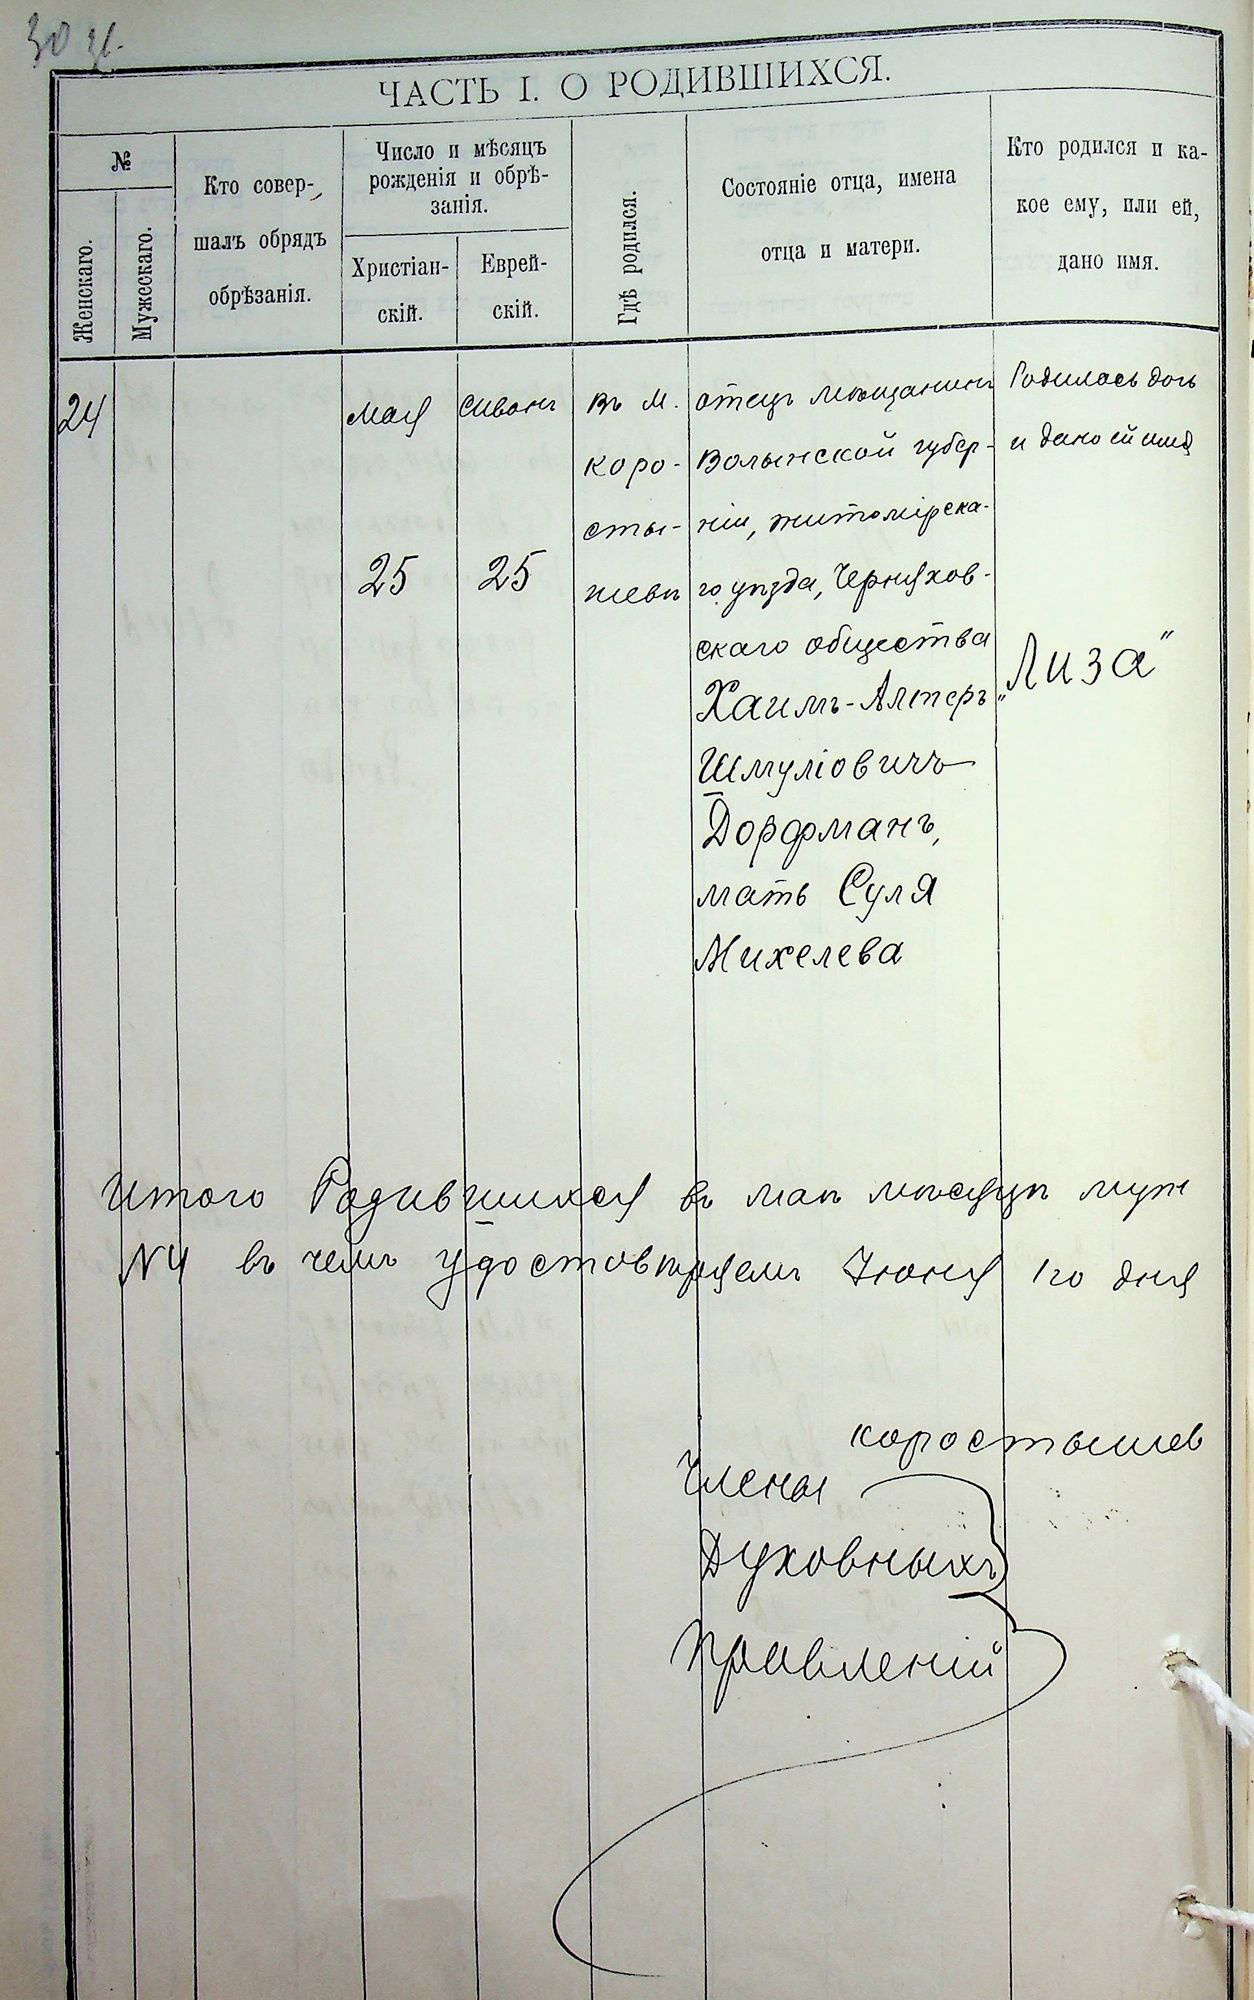 ЧАСТЬ I. О РОДИВШИХСЯ.
№
Женскаго.
Мужескаго.
Кто совер-
шалъ обрядъ
обрѣзанія.
Число и мѣсяцъ
рожденія и обрѣ-
занія.
Христіан-
скій.
Еврей-
скій.
Гдѣ родился.
Состояніе отца, имена
отца и матери.
Кто родился и ка-
кое ему, или ей,
дано имя.
24
Мая
25
Сиванъ
25
Въ м.
Коро-
сты-
шевѣ
Отецъ мѣщанинъ
Волынской губер-
ніи, Житомірска-
го уѣзда, Черняхов-
скаго общества
Хаимъ-Алтеръ
Шмуліовичъ
Дорфманъ,
мать Суля
Михелева
Родилась дочь
и дано ей имя
„Лиза"
Итого Родившихся въ маѣ мѣсяцѣ муж
№4 въ чемъ удостовѣряемъ Іюня 1го дня
Коростышев
Члены
Духовныхъ
Правленій